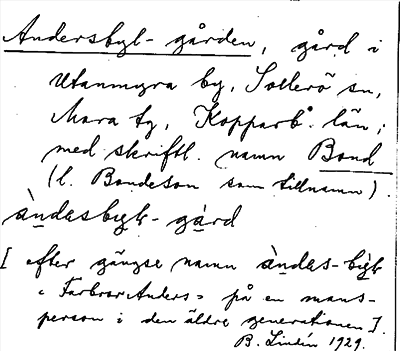 Andersbyk-gården, gård i
Utanmyra by, Sollerö sn,
Mora tg, Kopparb. län;
med skriftl. namn Bond
(l. Bondeson som tillnamn).
àndasbyk-gàrd
[efter gängse namn àndas-byk
"Farbror Anders" på en mans-
person i den äldre generationen].
B. Lindén 1929.